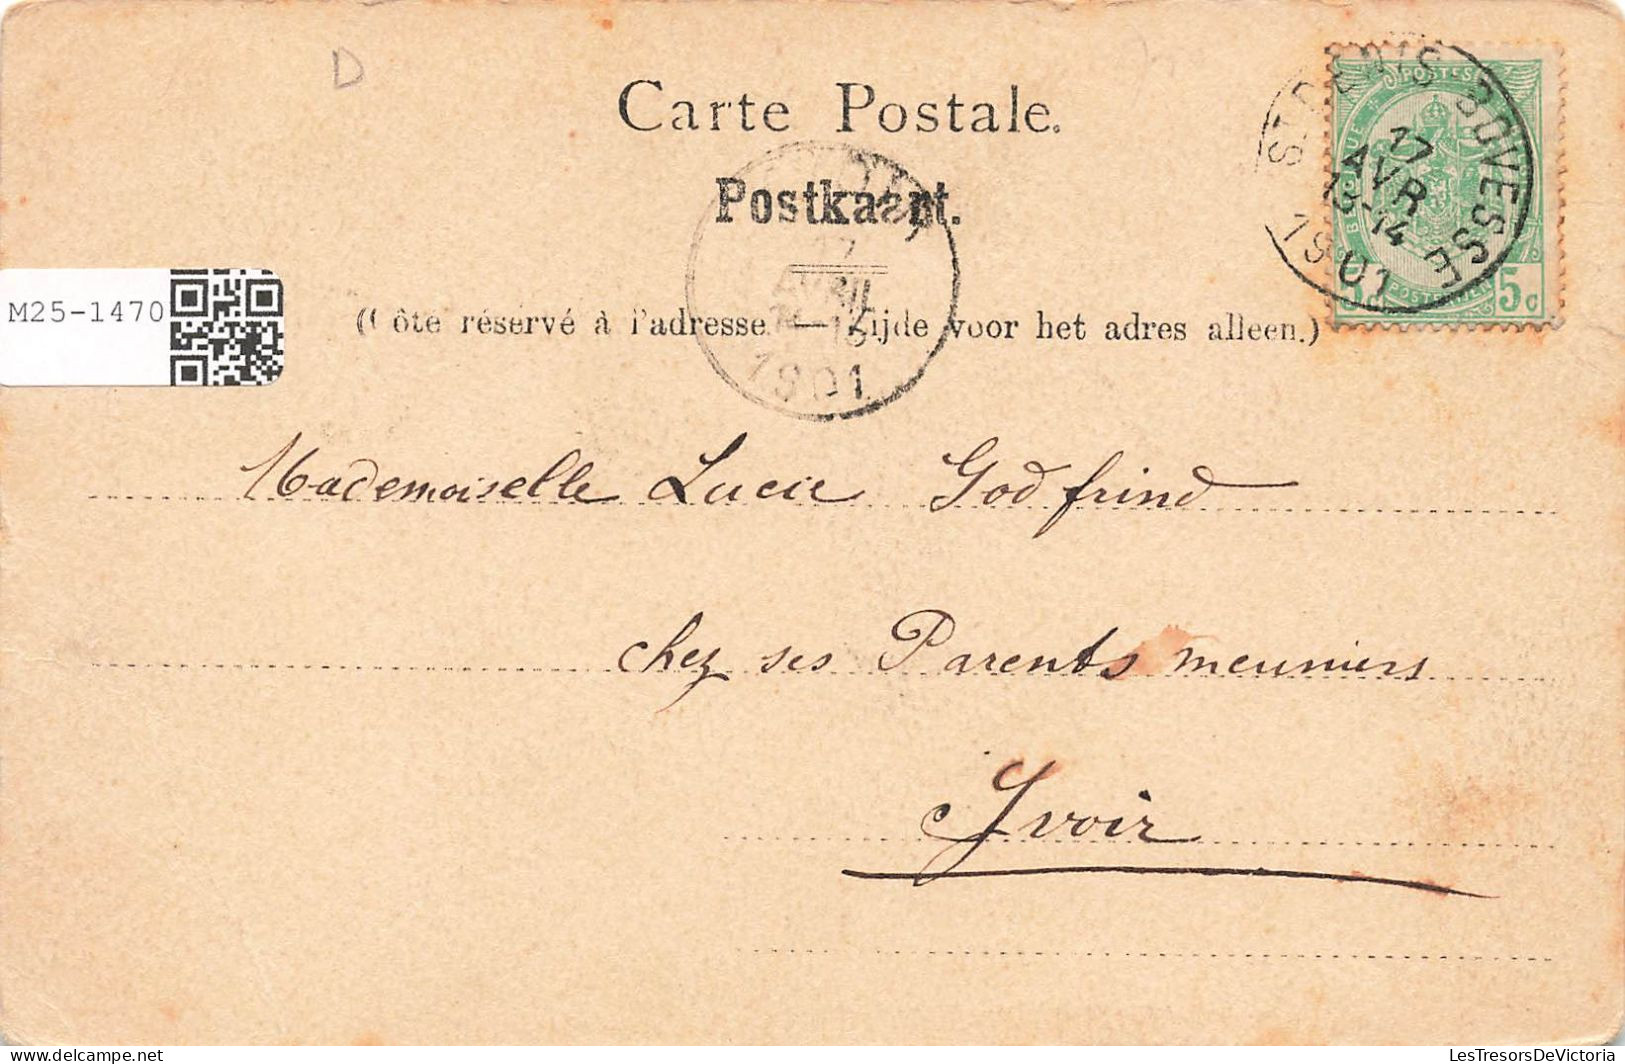 D
Carte Postale.
Postkaart.
(Côte réservé à l'adresse. — Zijde voor het adres alleen.)
ST DENIS-BOVESSE
17
AVR
13-14
1901
POSTES
5c
17
AVRIL
1901
M25-1470
Mademoiselle Lucie Godfrind
chez ses Parents meuniers
Yvoir
delcampe.net
LesTresorsDeVictoria